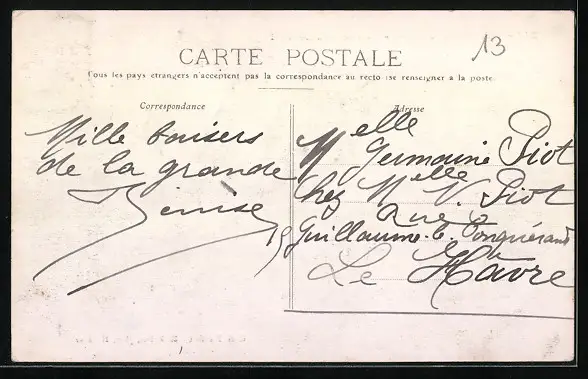 13
CARTE POSTALE
Tous les pays etrangers n'acceptent pas la correspondance au recto (se renseigner a la poste
Correspondance
Mille baisers
de la grande
Denise
Adresse
Melle
Germaine Piot
Chez Melle V. Piot
Rue
19 Guillaume-le-Conquérant
Le Hâvre